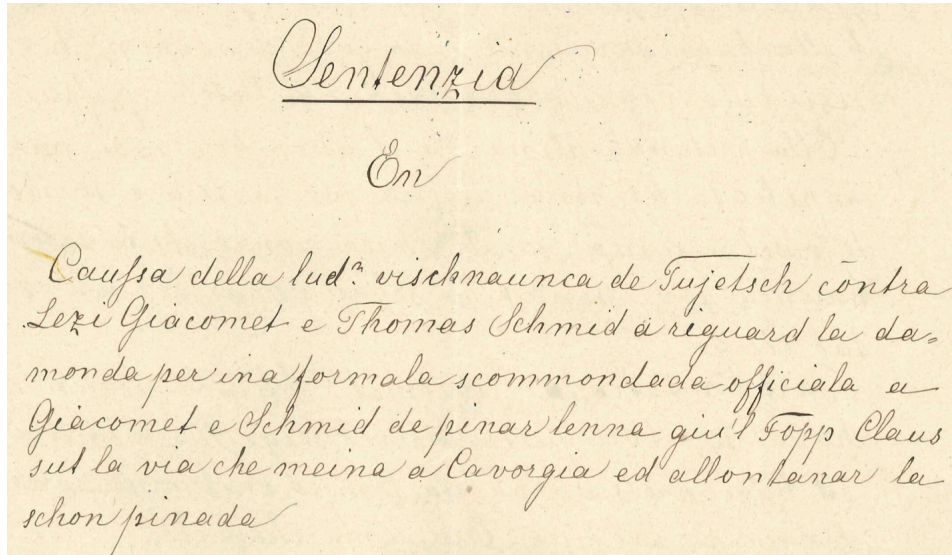 Sentenzia
En
Caussa della lud.ª vischnaunca de Tujetsch cōntra
Lezi Giacomet e Thomas Schmid a riguard la da=
monda per ina formala scommondada officiala a
Giacomet e Schmid de pinar lenna giu'l Fopp Claus
sut la via che meina a Cavorgia ed allontanar la
schon pinada